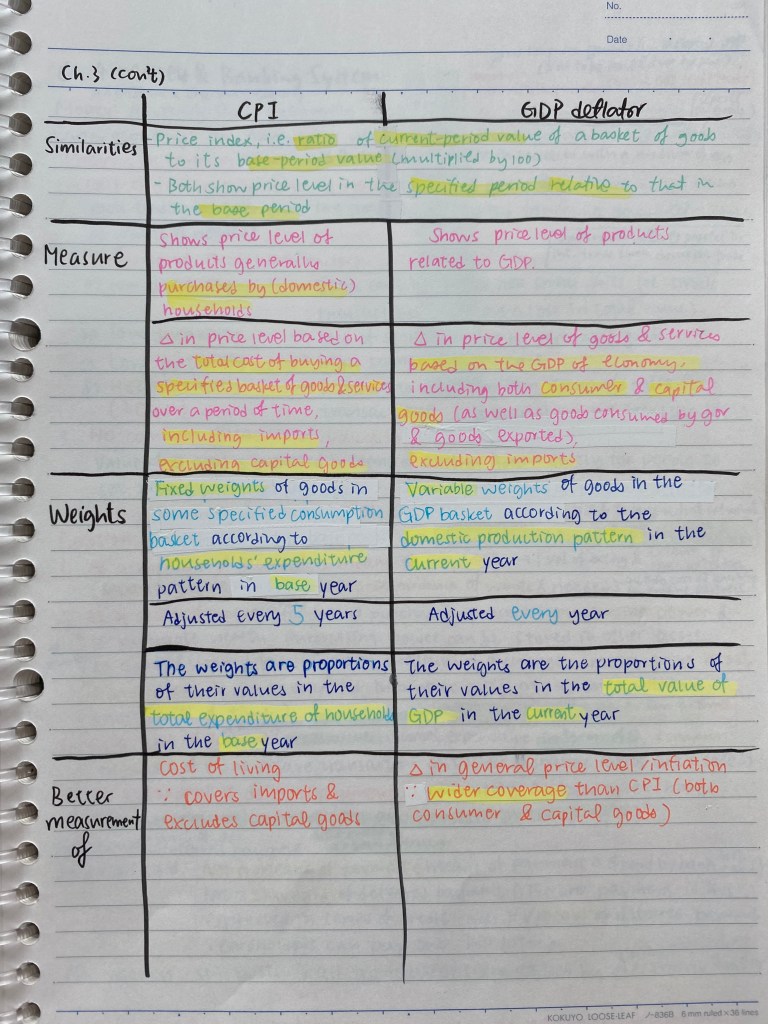 No.
Date
Ch.3 (con't)
CPI
GDP deflator
Similarities
- Price index, i.e. ratio of current-period value of a basket of goods
to its base-period value (multiplied by 100)
- Both show price level in the specified period relative to that in
the base period
Measure
Shows price level of
products generally
purchased by (domestic)
households
Shows price level of products
related to GDP.
Δ in price level based on
the total cost of buying a
specified basket of goods & services
over a period of time,
including imports,
excluding capital goods
Δ in price level of goods & services
based on the GDP of economy,
including both consumer & capital
goods (as well as goods consumed by gov
& goods exported),
excluding imports
Weights
Fixed weights of goods in
some specified consumption
basket according to
households' expenditure
pattern in base year
Variable weights of goods in the
GDP basket according to the
domestic production pattern in the
current year
Adjusted every 5 years
Adjusted every year
The weights are proportions
of their values in the
total expenditure of households
in the base year
The weights are the proportions of
their values in the total value of
GDP in the current year
Better
measurement
of
cost of living
∵ covers imports &
excludes capital goods
Δ in general price level / inflation
∵ wider coverage than CPI (both
consumer & capital goods)
KOKUYO LOOSE-LEAF ノ-836B 6 mm ruled×36 lines